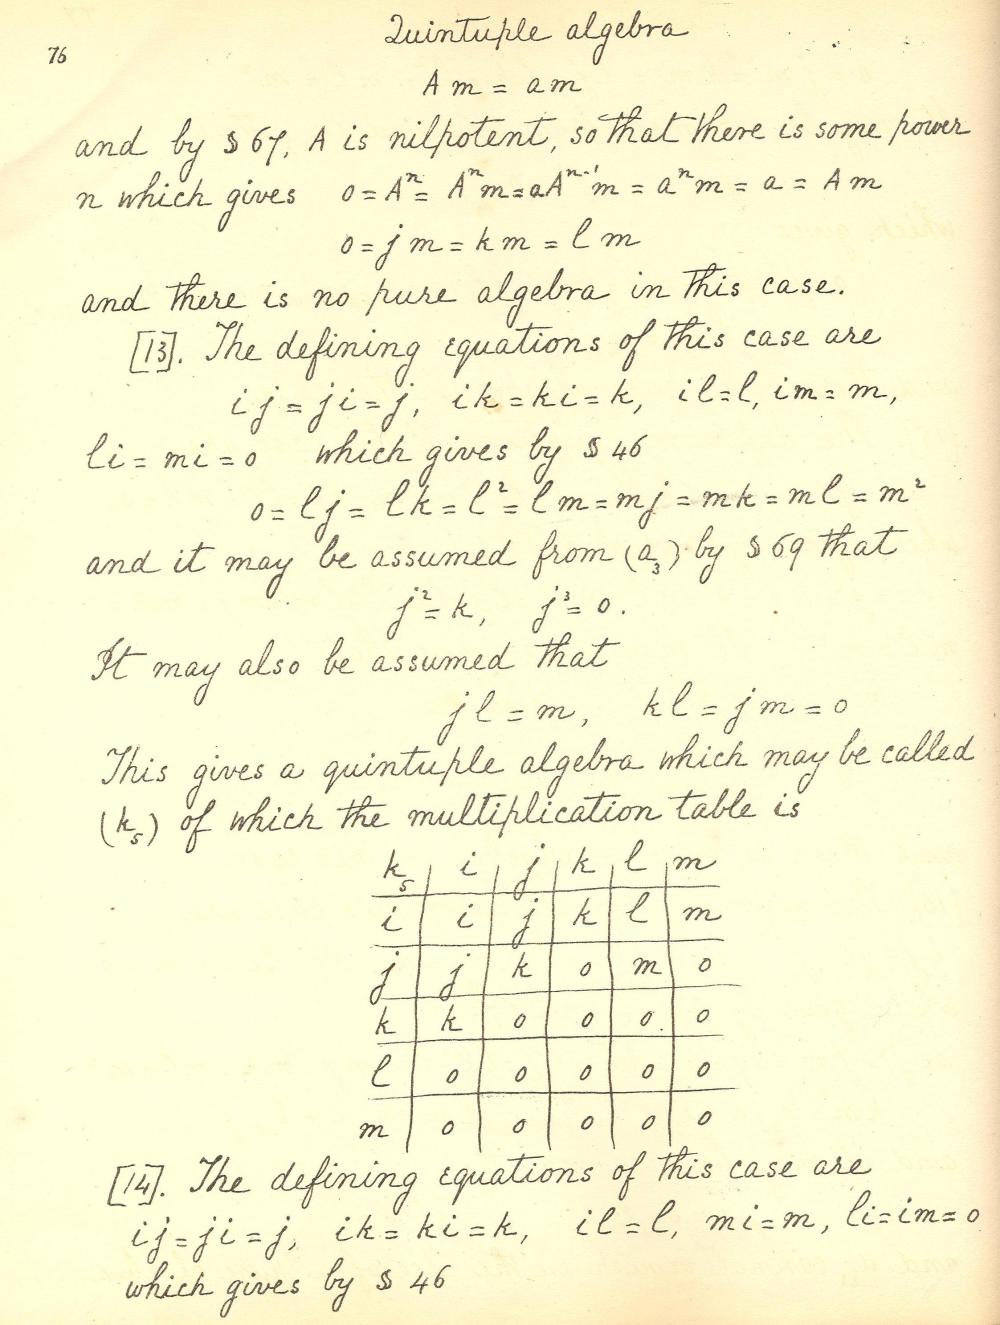 Quintuple algebra
76
Am = am
and by § 67, A is nilpotent, so that there is some power
n which gives 0 = Aⁿ = Aⁿm = aAⁿ⁻¹m = aⁿm = a = Am
0 = jm = km = lm
and there is no pure algebra in this case.
[13]. The defining equations of this case are
ij = ji = j, ik = ki = k, il = l, im = m,
li = mi = 0 which gives by § 46
0 = lj = lk = l² = lm = mj = mk = ml = m²
and it may be assumed from (a₃) by § 69 that
j² = k, j³ = 0.
It may also be assumed that
jl = m, kl = jm = 0
This gives a quintuple algebra which may be called
(k₅) of which the multiplication table is
k₅ i j k l m
i i j k l m
j j k 0 m 0
k k 0 0 0 0
l 0 0 0 0 0
m 0 0 0 0 0
[14]. The defining equations of this case are
ij = ji = j, ik = ki = k, il = l, mi = m, li = im = 0
which gives by § 46